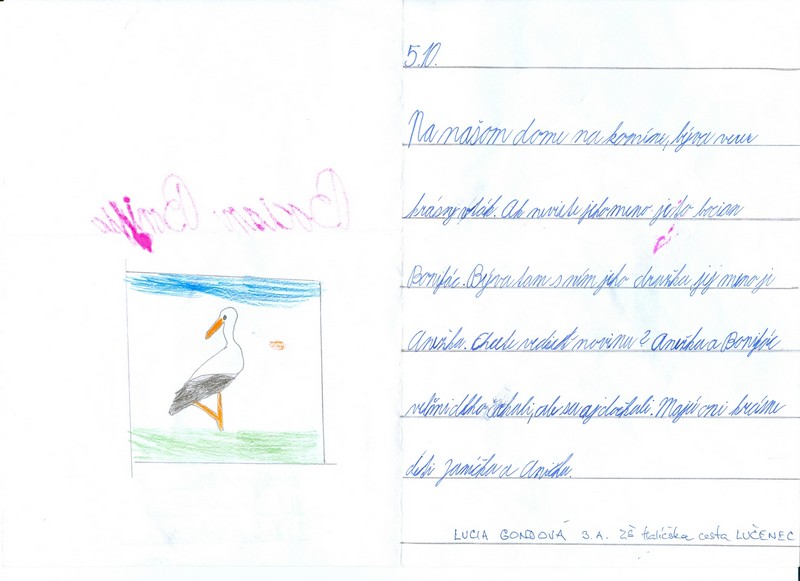 Bocian Bonifác
5.10.
Na našom dome na komíne, býva veľer
krásny vták. Ak neviete jeho meno je to bocian
Bonifác. Býva tam s ním jeho družka jej meno ji
Anežka. Chcete vedieť novinu? Anežka a Bonifác
veľmi dlho čakali, ale sa aj dočkali. Majú oni krásne
deti Janíčka a Aničku.
LUCIA GONDOVÁ 3.A. ZŠ haličska cesta LUČENEC